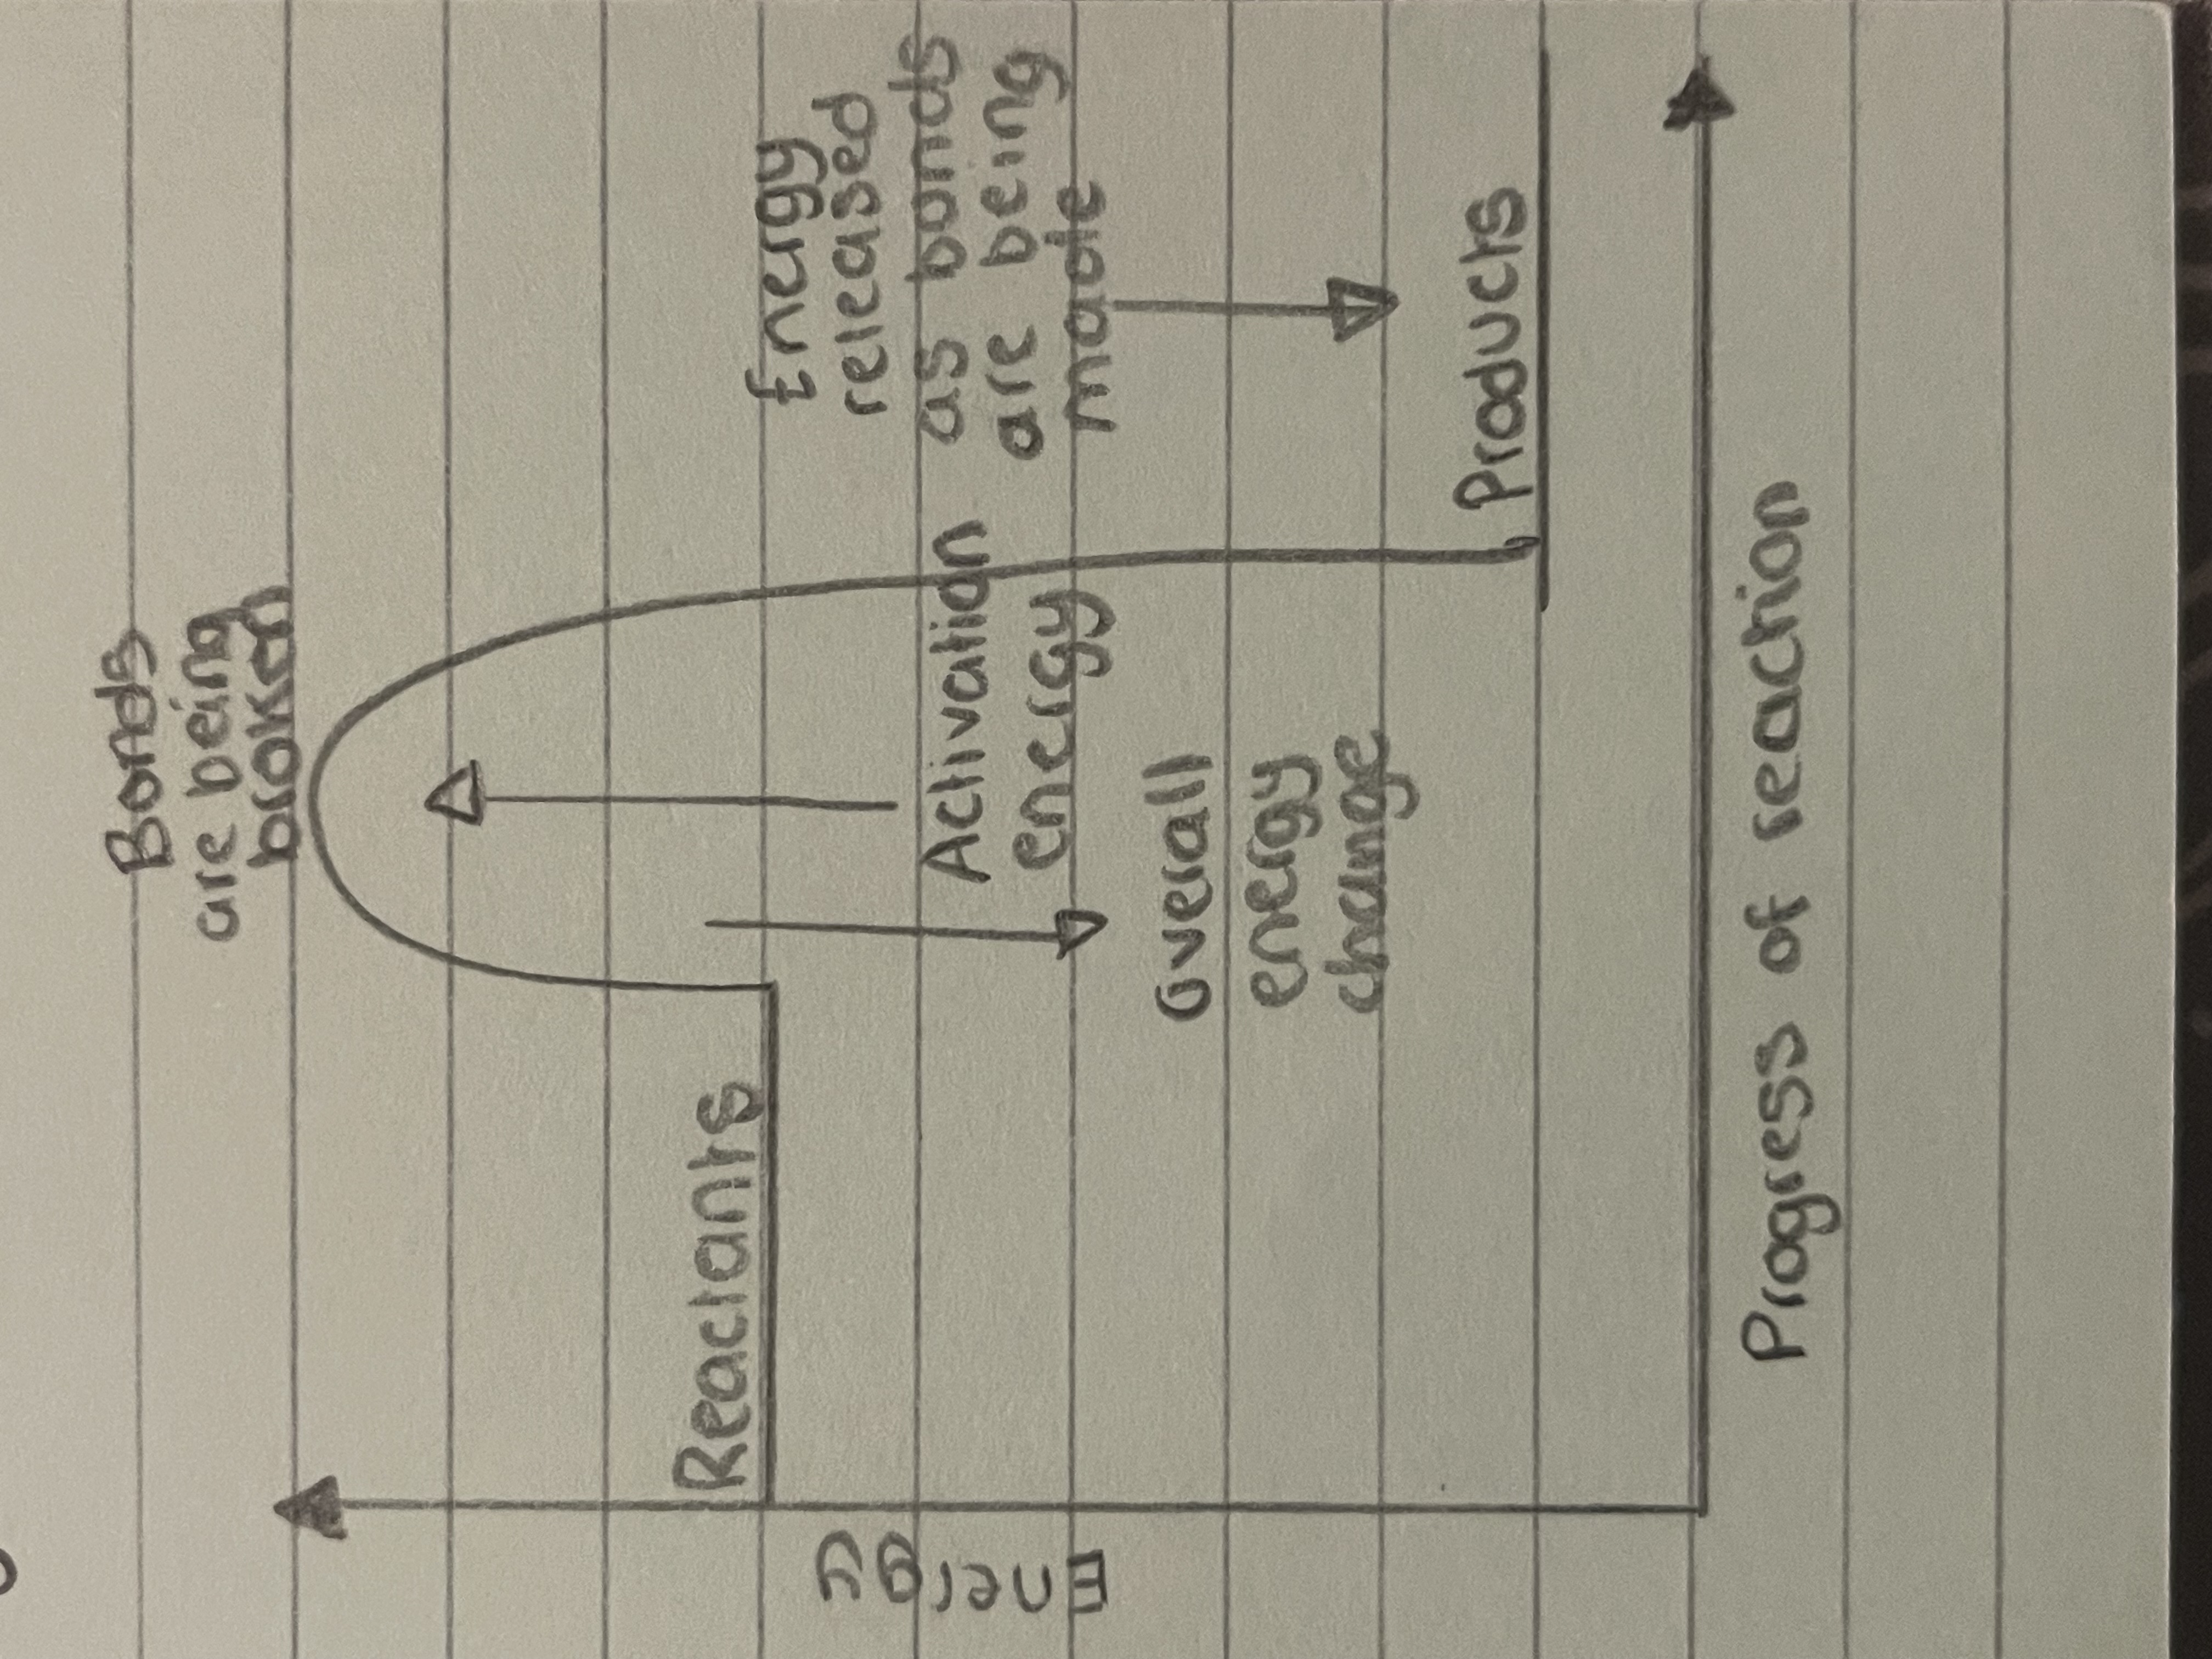 Bonds
are being
broken
Reactants
Energy
released
as bonds
are being
made
Activation
energy
Overall
energy
change
Products
Energy
Progress of reaction